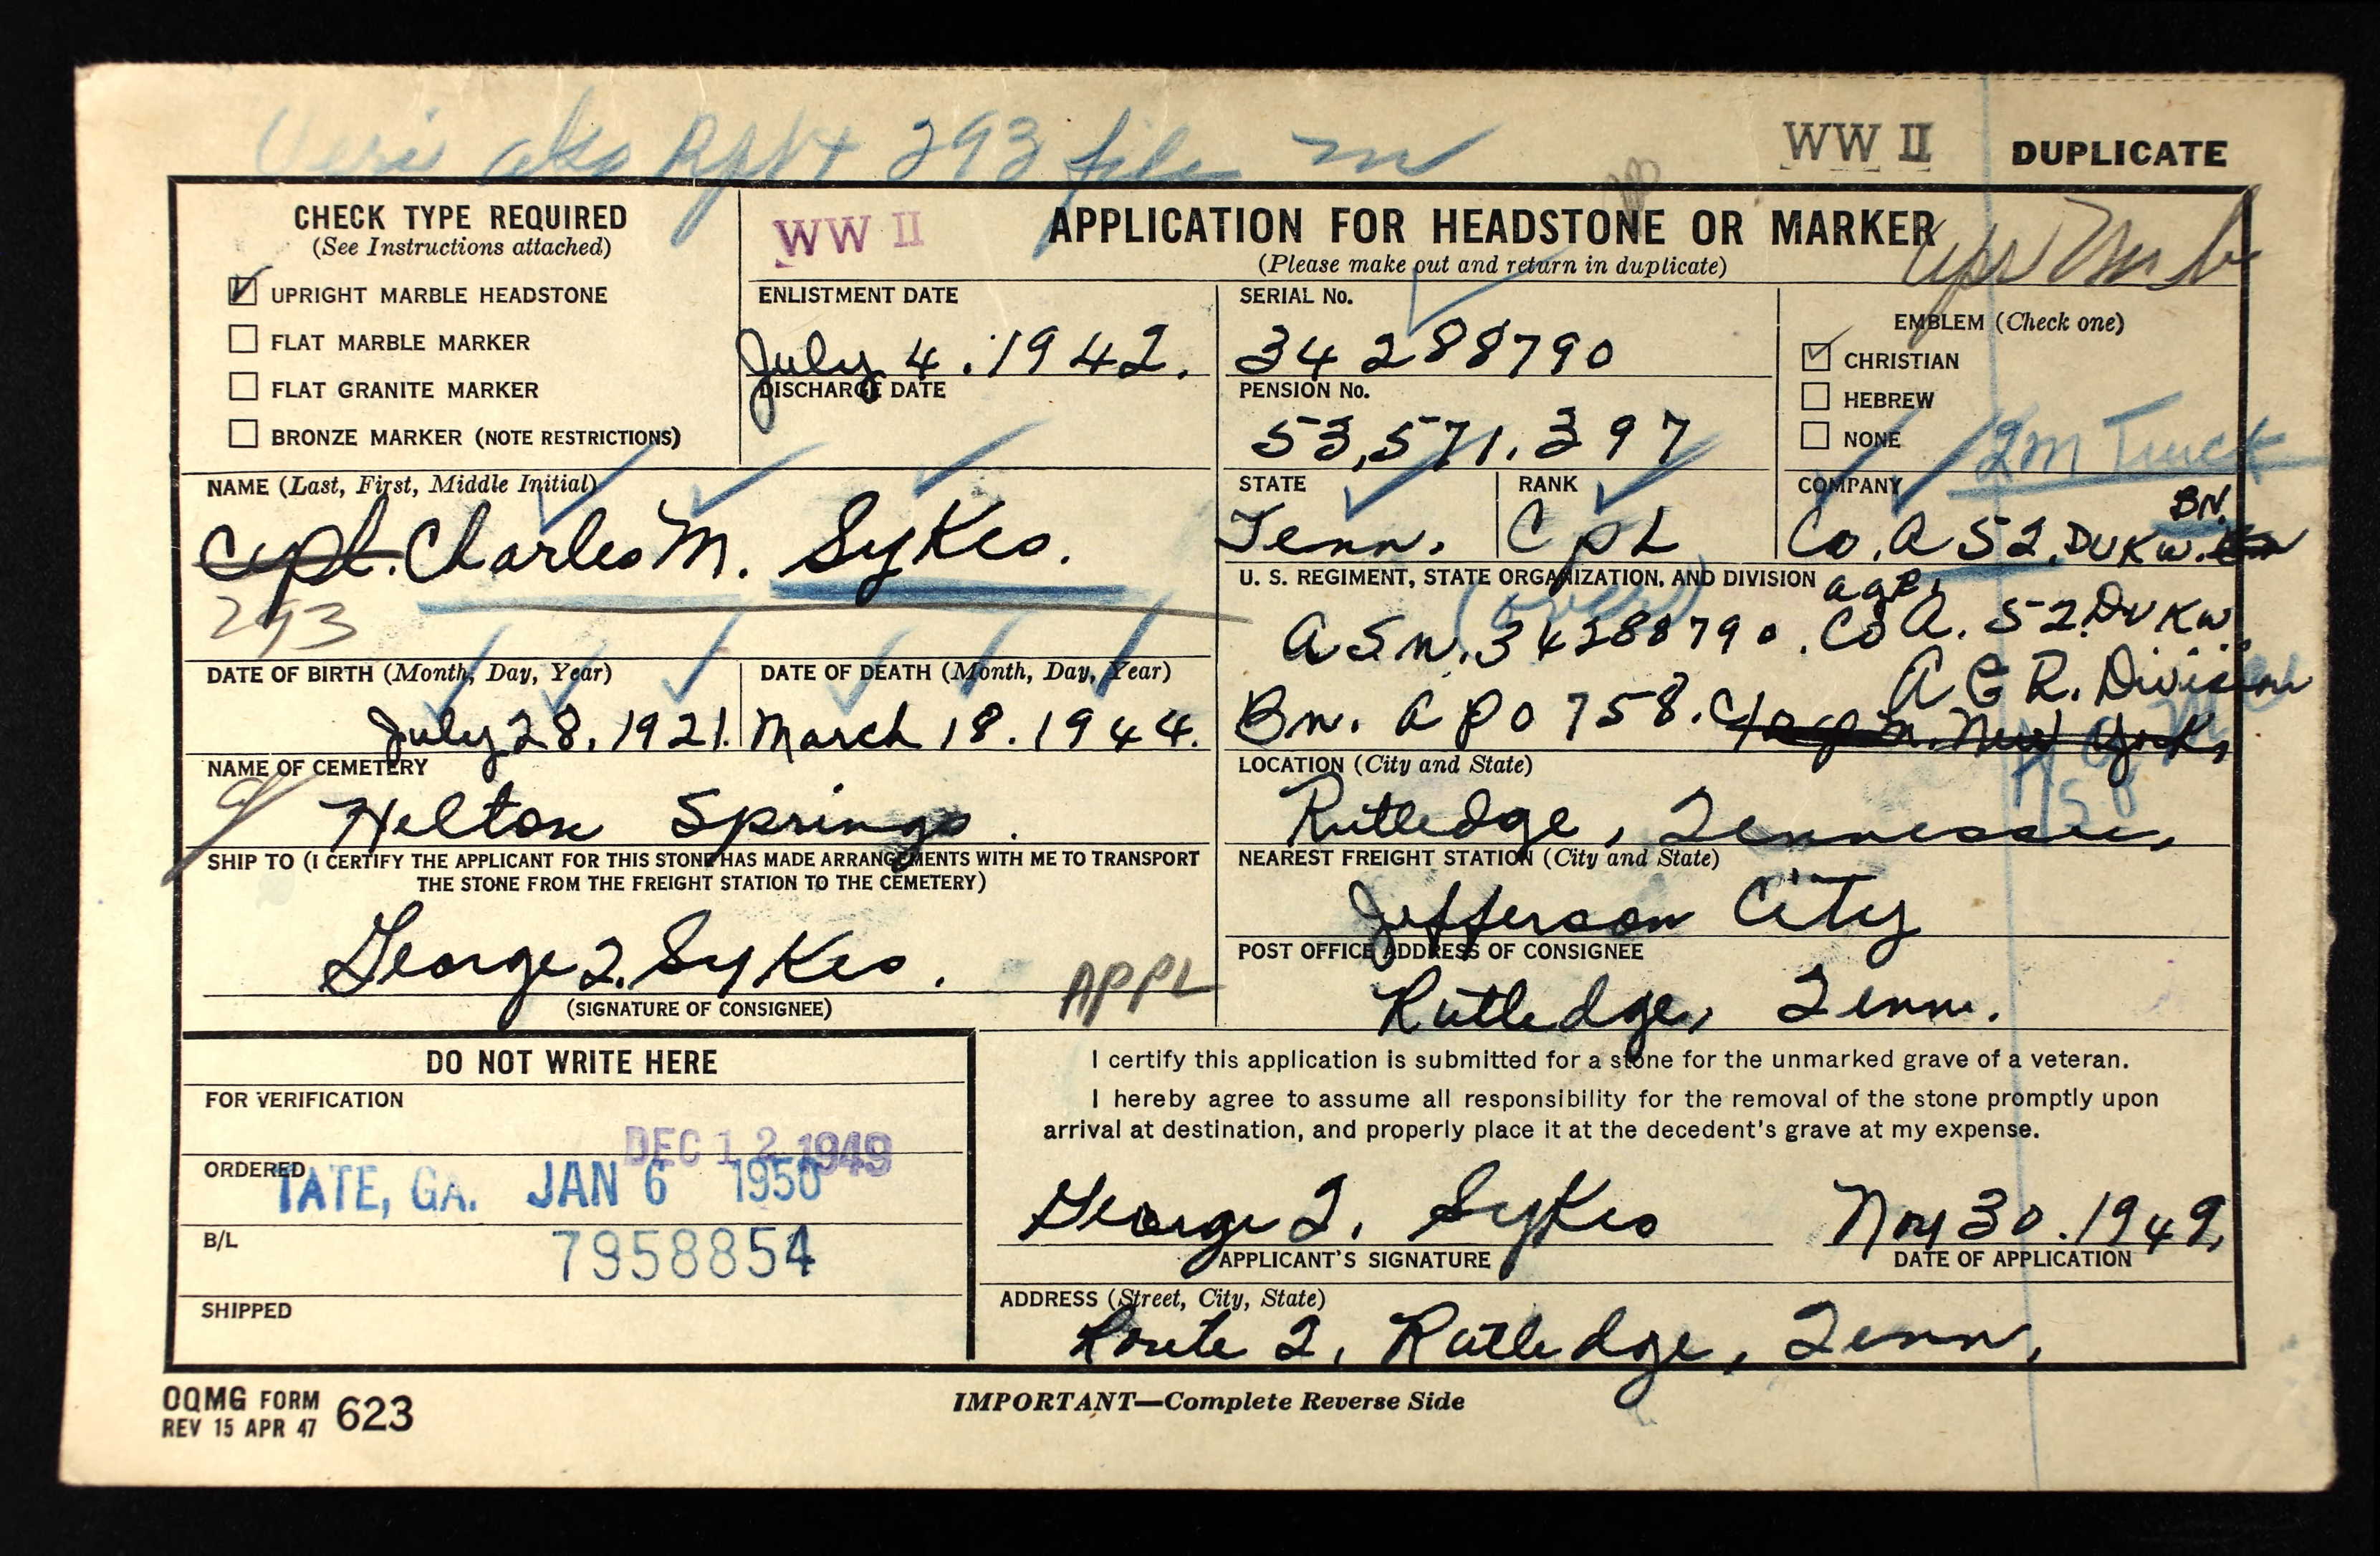 293 file
WW II DUPLICATE
CHECK TYPE REQUIRED
(See Instructions attached)
UPRIGHT MARBLE HEADSTONE
FLAT MARBLE MARKER
FLAT GRANITE MARKER
BRONZE MARKER (NOTE RESTRICTIONS)
WW II
APPLICATION FOR HEADSTONE OR MARKER
(Please make out and return in duplicate)
ENLISTMENT DATE
July 4. 1942.
DISCHARGE DATE
SERIAL No.
34 288790
PENSION No.
53,571.397
EMBLEM (Check one)
CHRISTIAN
HEBREW
NONE
2M Truck
NAME (Last, First, Middle Initial)
Cpl. Charles M. Sykes.
293
STATE
Tenn.
RANK
CpL
COMPANY
BN.
Co. A 52. DUKW.
U. S. REGIMENT, STATE ORGANIZATION, AND DIVISION
(over)
A S n. 34288790. Co A. 52. DUKW
A G R. Division
Bn. A P O 758. New York,
DATE OF BIRTH (Month, Day, Year)
July 28, 1921.
DATE OF DEATH (Month, Day, Year)
March 18. 1944.
NAME OF CEMETERY
Helton Springs.
LOCATION (City and State)
Rutledge, Tennessee,
SHIP TO (I CERTIFY THE APPLICANT FOR THIS STONE HAS MADE ARRANGEMENTS WITH ME TO TRANSPORT
THE STONE FROM THE FREIGHT STATION TO THE CEMETERY)
George T. Sykes.
(SIGNATURE OF CONSIGNEE)
APPL
NEAREST FREIGHT STATION (City and State)
Jefferson City
POST OFFICE ADDRESS OF CONSIGNEE
Rutledge, Tenn.
DO NOT WRITE HERE
FOR VERIFICATION
DEC 12 1949
ORDERED
TATE, GA. JAN 6 1950
B/L
7958854
SHIPPED
I certify this application is submitted for a stone for the unmarked grave of a veteran.
I hereby agree to assume all responsibility for the removal of the stone promptly upon
arrival at destination, and properly place it at the decedent's grave at my expense.
George T. Sykes
APPLICANT'S SIGNATURE
Nov 30. 1949,
DATE OF APPLICATION
ADDRESS (Street, City, State)
Route 2, Rutledge, Tenn,
OQMG FORM 623
REV 15 APR 47
IMPORTANT—Complete Reverse Side